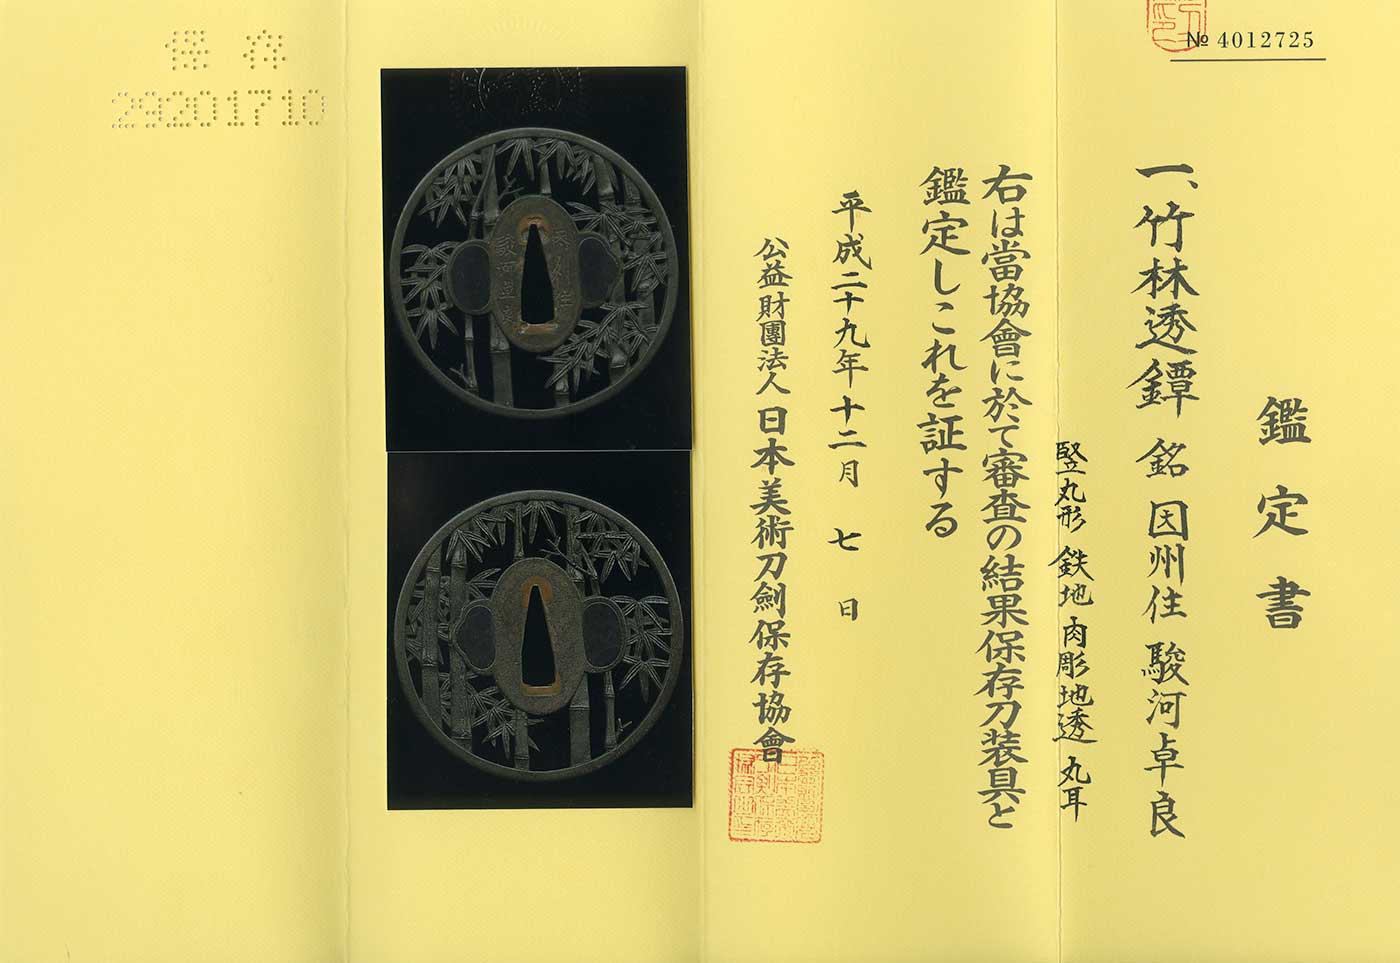 № 4012725
鑑定書
一、竹林透鐔 銘 因州住 駿河卓良
竪丸形 鉄地 肉彫地透 丸耳
右は當協會に於て審査の結果保存刀装具と
鑑定しこれを証する
平成二十九年十二月 七 日
公益財團法人 日本美術刀劍保存協會
保存
29201710